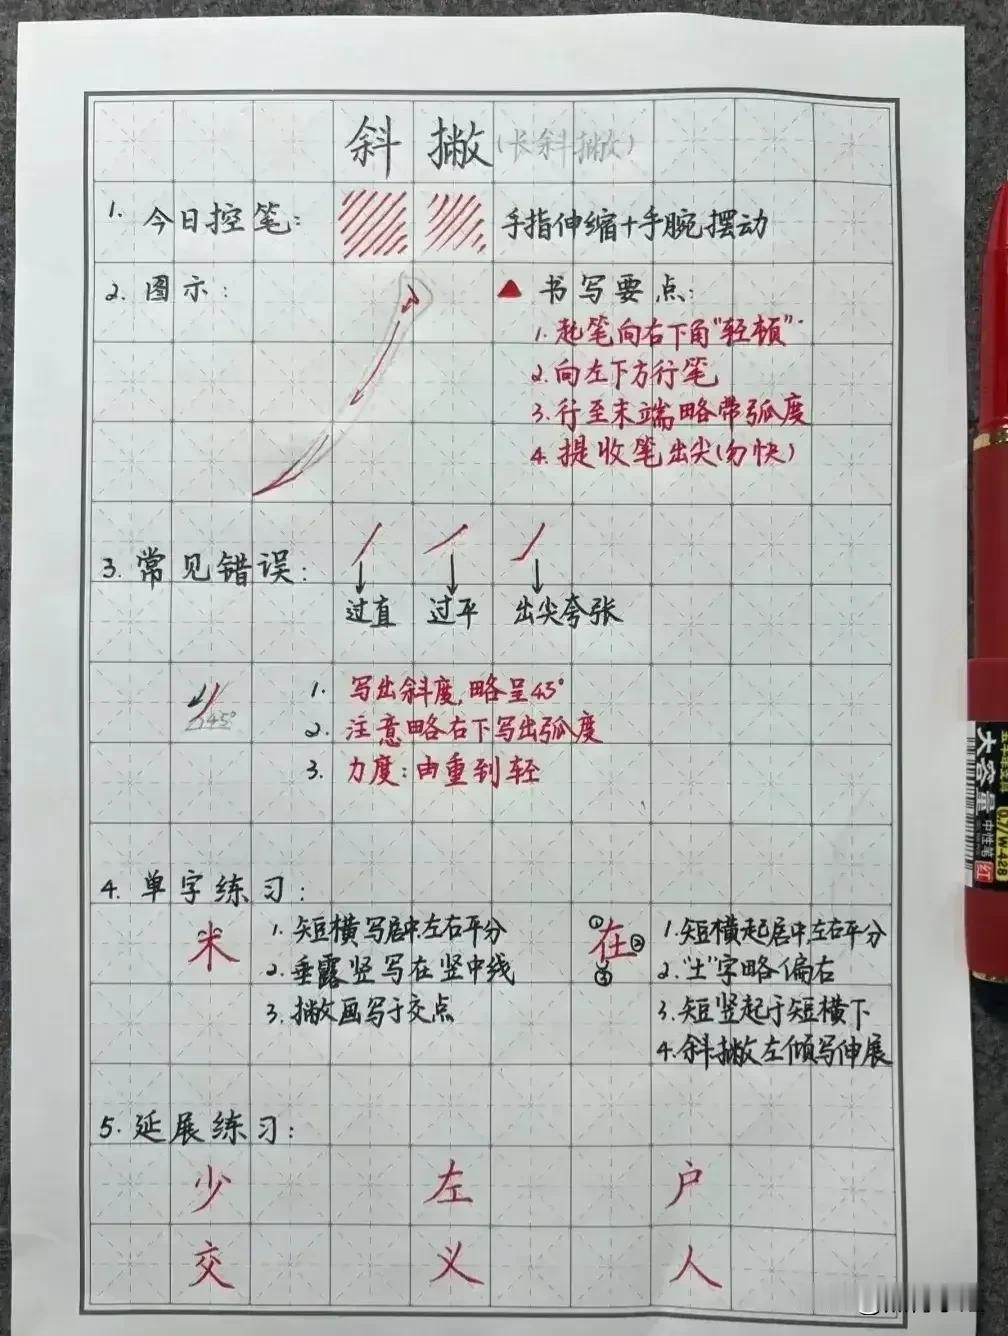 斜撇(长斜撇)
1. 今日控笔: 手指伸缩+手腕摆动
2. 图示:
▲ 书写要点:
1. 起笔向右下角"轻顿".
2. 向左下方行笔
3. 行至末端略带弧度
4. 提收笔出尖(勿快)
3. 常见错误:
过直 过平 出尖夸张
45°
1. 写出斜度,略呈45°
2. 注意略右下写出弧度
3. 力度:由重到轻
4. 单字练习:
米
1. 短横写居中,左右平分
2. 垂露竖写在竖中线
3. 撇画写于交点
① 在 ② ③
1. 短横起居中,左右平分
2. "土"字略偏右
3. 短竖起于短横下
4. 斜撇左倾写伸展
5. 延展练习:
少 左 户
交 义 人
大容量
中性笔
0.7/W-428
红